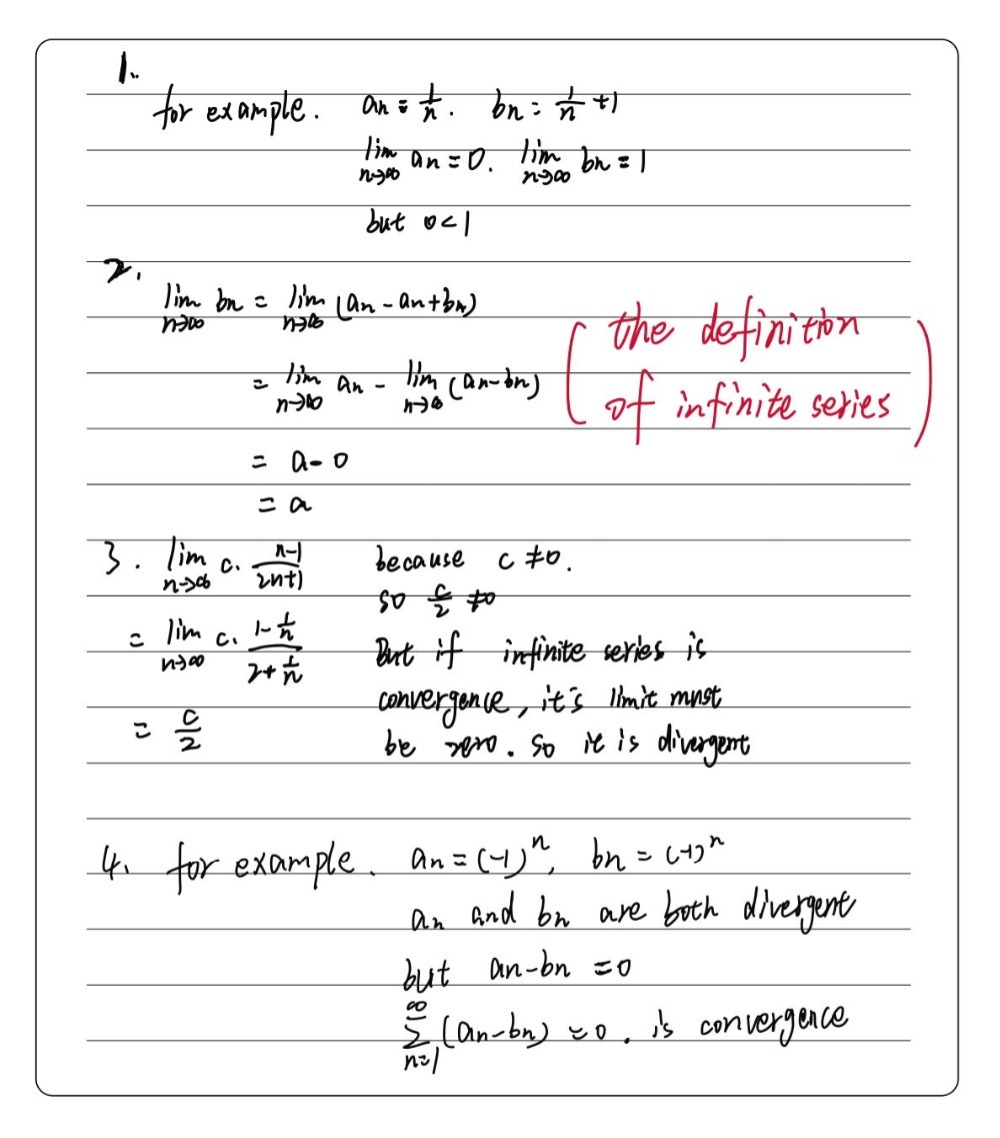 1.
for example. an = 1/n. bn = 1/n +1
lim n→∞ an = 0. lim n→∞ bn = 1
but 0<1
2.
lim n→∞ bn = lim n→∞ (an - an + bn)
= lim n→∞ an - lim n→∞ (an-bn)
(the definition
of infinite series)
= a - 0
= a
3. lim n→∞ c. (n-1)/(2n+1) because c ≠0.
so c/2 ≠0
= lim n→∞ c. (1-1/n)/(2+1/n) But if infinite series is
convergence, it's limit must
= c/2
be zero. so it is divergent
4. for example. an = (-1)^n, bn = (-1)^n
an and bn are both divergent
but an-bn =0
∞∑n=1 (an-bn) =0. is convergence